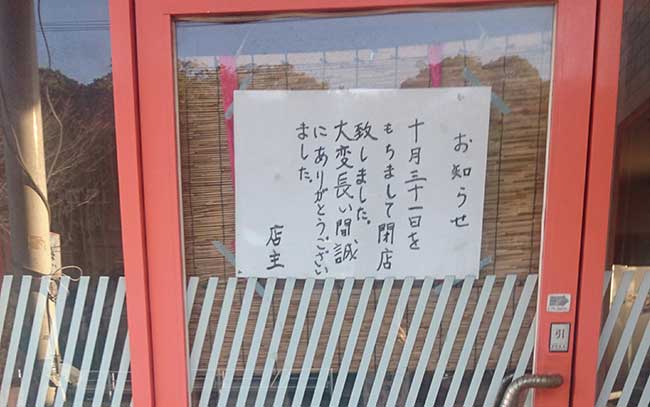 お知らせ
十月三十一日を
もちまして閉店
致しました。
大変長い間誠
にありがとうござい
ました。
店主
引